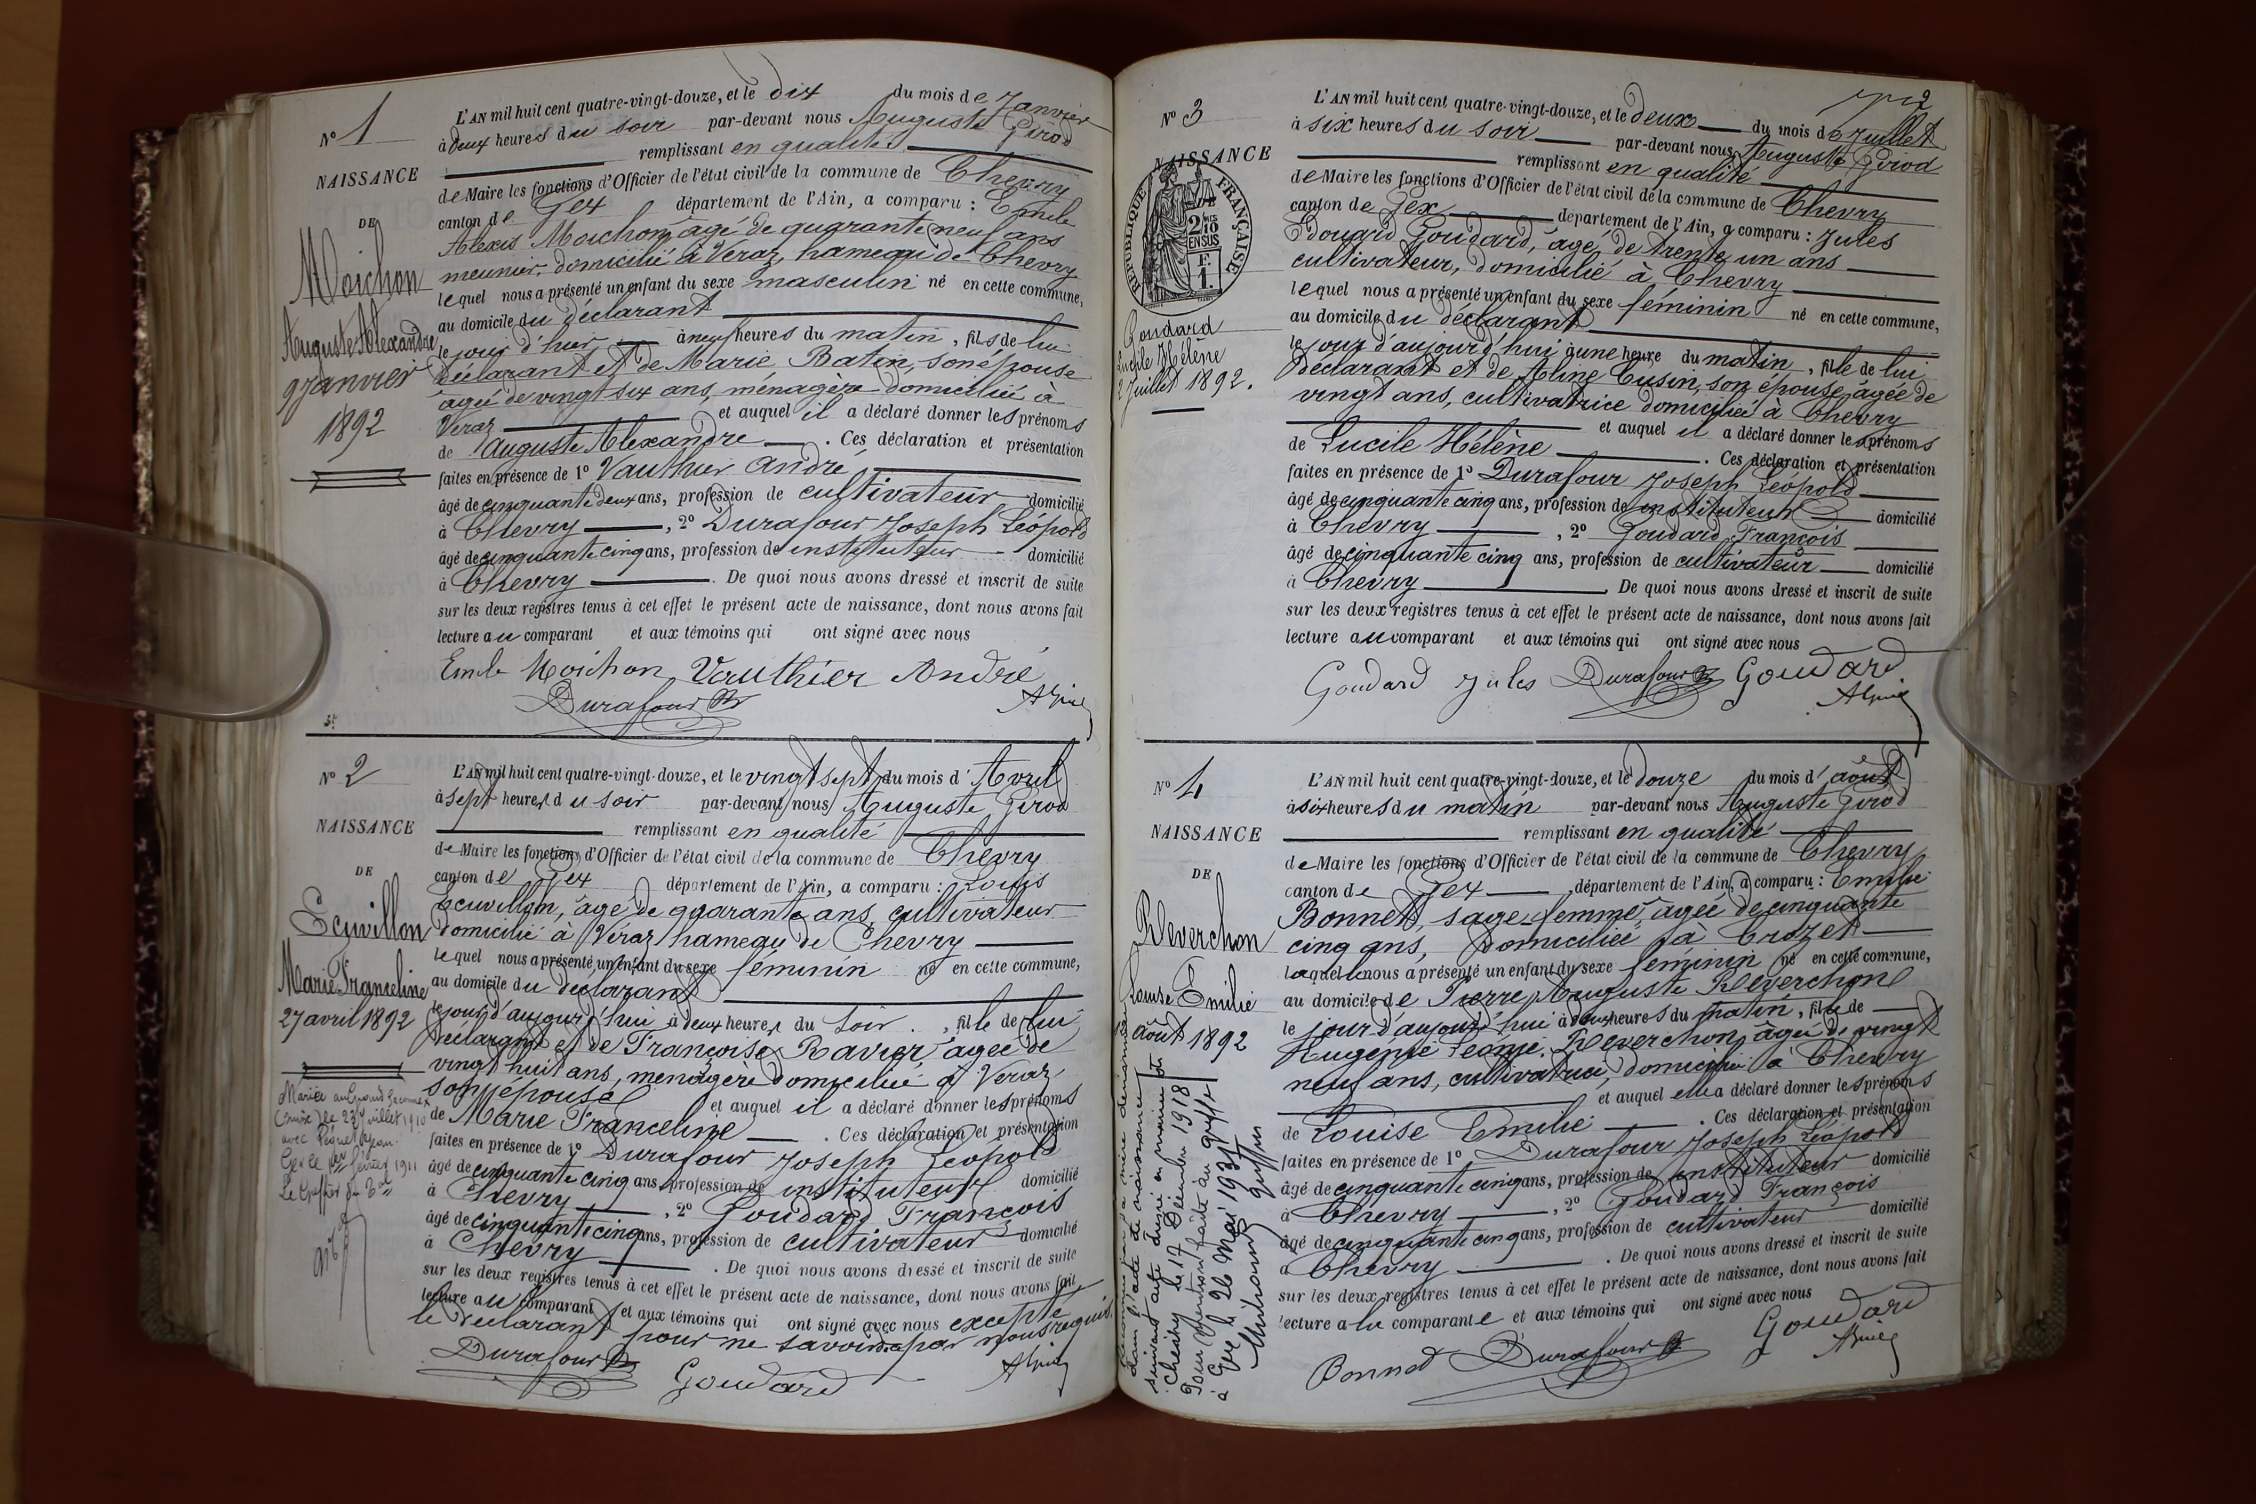 N° 1
NAISSANCE
DE
Moichon
Auguste Alexandre
9 Janvier
1892
L'AN mil huit cent quatre-vingt-douze, et le dix du mois de Janvier
à deux heures du soir par-devant nous Auguste Girod
remplissant en qualité
de Maire les fonctions d'Officier de l'état civil de la commune de Chevry
canton de Gex département de l'Ain, a comparu : Emile
Alexis Moichon, âgé de quarante neuf ans
meunier, domicilié à Véraz, hameau de Chevry
lequel nous a présenté un enfant du sexe masculin né en cette commune,
au domicile du déclarant
le jour d'hier à neuf heures du matin, fils de lui
déclarant et de Marie Batin, son épouse
âgée de vingt six ans, ménagère domiciliée à
Véraz et auquel il a déclaré donner les prénoms
de Auguste Alexandre . Ces déclaration et présentation
faites en présence de 1° Vauthier André
âgé de cinquante deux ans, profession de cultivateur domicilié
à Chevry , 2° Durafour Joseph Léopold
âgé de cinquante cinq ans, profession de instituteur domicilié
à Chevry . De quoi nous avons dressé et inscrit de suite
sur les deux registres tenus à cet effet le présent acte de naissance, dont nous avons fait
lecture au comparant et aux témoins qui ont signé avec nous
Emile Moichon Vauthier André
Durafour AGirod
N° 2
NAISSANCE
DE
Ecuvillon
Marie Franceline
27 avril 1892
Mariée au Grand Saconnex
(Suisse) le 23 Juillet 1910
avec
Gex le 1er février 1911
Le Greffier du Tal
L'AN mil huit cent quatre-vingt-douze, et le vingt sept du mois d'Avril
à sept heures du soir par-devant nous Auguste Girod
remplissant en qualité
de Maire les fonctions d'Officier de l'état civil de la commune de Chevry
canton de Gex département de l'Ain, a comparu : Louis
Ecuvillon, âgé de quarante ans, cultivateur
domicilié à Véraz hameau de Chevry
lequel nous a présenté un enfant du sexe féminin né en cette commune,
au domicile du déclarant
le jour d'aujourd'hui à deux heures du soir , fille de lui
déclarant et de Françoise Ravier âgée de
vingt huit ans, ménagère domiciliée à Véraz,
son épouse et auquel il a déclaré donner les prénoms
de Marie Franceline . Ces déclaration et présentation
faites en présence de 1° Durafour Joseph Léopold
âgé de cinquante cinq ans, profession de instituteur domicilié
à Chevry , 2° Goudard François
âgé de cinquante cinq ans, profession de cultivateur domicilié
à Chevry . De quoi nous avons dressé et inscrit de suite
sur les deux registres tenus à cet effet le présent acte de naissance, dont nous avons fait
lecture au comparant et aux témoins qui ont signé avec nous excepté
le déclarant pour ne savoir de par nous requis.
Durafour Goudard AGirod
2
N° 3
NAISSANCE
REPUBLIQUE FRANÇAISE
2/10 EN SUS
F.
1.
Goudard
Lucile Hélène
2 Juillet 1892.
L'AN mil huit cent quatre-vingt-douze, et le deux du mois de Juillet
à six heures du soir par-devant nous Auguste Girod
remplissant en qualité
de Maire les fonctions d'Officier de l'état civil de la commune de Chevry
canton de Gex département de l'Ain, a comparu : Jules
Edouard Goudard, âgé de trente un ans
cultivateur, domicilié à Chevry
lequel nous a présenté un enfant du sexe féminin né en cette commune,
au domicile du déclarant
le jour d'aujourd'hui à une heure du matin, fille de lui
déclarant et de Aline Cusin, son épouse âgée de
vingt ans, cultivatrice domiciliée à Chevry
et auquel il a déclaré donner les prénoms
de Lucile Hélène . Ces déclaration et présentation
faites en présence de 1° Durafour Joseph Léopold
âgé de cinquante cinq ans, profession de instituteur domicilié
à Chevry , 2° Goudard François
âgé de cinquante cinq ans, profession de cultivateur domicilié
à Chevry . De quoi nous avons dressé et inscrit de suite
sur les deux registres tenus à cet effet le présent acte de naissance, dont nous avons fait
lecture au comparant et aux témoins qui ont signé avec nous
Goudard Jules Durafour Goudard
AGirod
N° 4
NAISSANCE
DE
Reverchon
Louise Emilie
août 1892
Reconnue par sa mère
dans l'acte de naissance
suivant acte dressé en mairie de
Chevry le 17 Décembre 1918
Pour mention faite au greffe
à Gex le 26 Mai 1931
L'AN mil huit cent quatre-vingt-douze, et le douze du mois d'août
à six heures du matin par-devant nous Auguste Girod
remplissant en qualité
de Maire les fonctions d'Officier de l'état civil de la commune de Chevry
canton de Gex département de l'Ain, a comparu : Emilie
Bonnet, sage-femme, âgée de cinquante
cinq ans, domiciliée à Crozet
laquelle nous a présenté un enfant du sexe féminin né en cette commune,
au domicile de Pierre Auguste Reverchon
le jour d'aujourd'hui à deux heures du matin, fille de
Eugénie Léonie Reverchon âgée de vingt
neuf ans, cultivatrice, domiciliée à Chevry
et auquel elle a déclaré donner les prénoms
de Louise Emilie . Ces déclaration et présentation
faites en présence de 1° Durafour Joseph Léopold
âgé de cinquante cinq ans, profession de instituteur domicilié
à Chevry , 2° Goudard François
âgé de cinquante cinq ans, profession de cultivateur domicilié
à Chevry . De quoi nous avons dressé et inscrit de suite
sur les deux registres tenus à cet effet le présent acte de naissance, dont nous avons fait
lecture a la comparante et aux témoins qui ont signé avec nous
Bonnet Durafour Goudard
AGirod